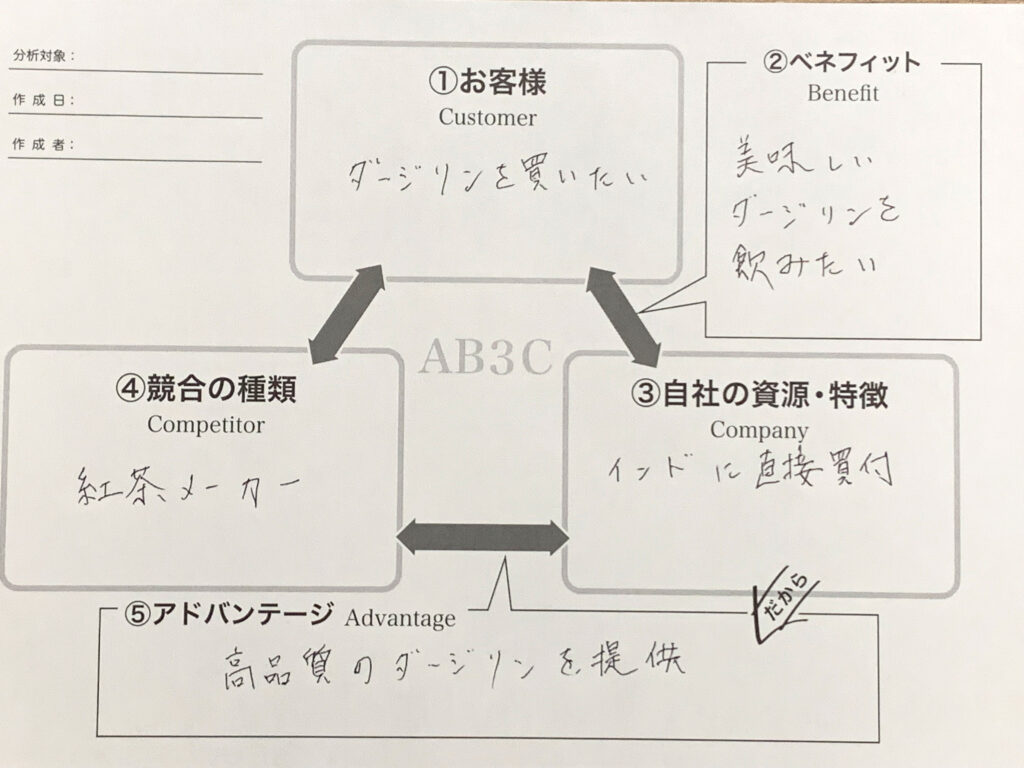 分析対象：
作成日：
作成者：
①お客様
Customer
ダージリンを買いたい
②ベネフィット
Benefit
美味しい
ダージリンを
飲みたい
AB3C
④競合の種類
Competitor
紅茶メーカー
③自社の資源・特徴
Company
インドに直接買付
だから
⑤アドバンテージ Advantage
高品質のダージリンを提供